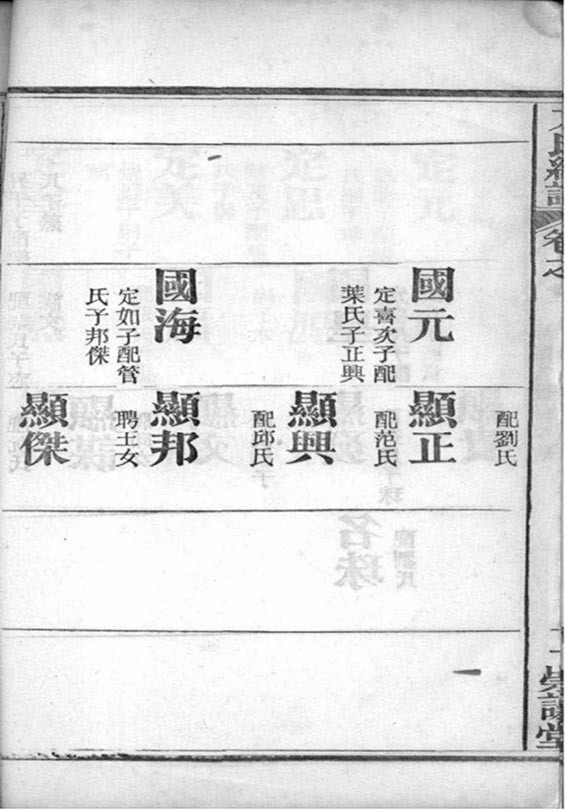 氏統譜
卷之
崇謙堂
國元
定喜次子配
葉氏子正興
國海
定如子配管
氏子邦傑
配劉氏
顯正
配范氏
顯興
配邱氏
顯邦
聘王女
顯傑